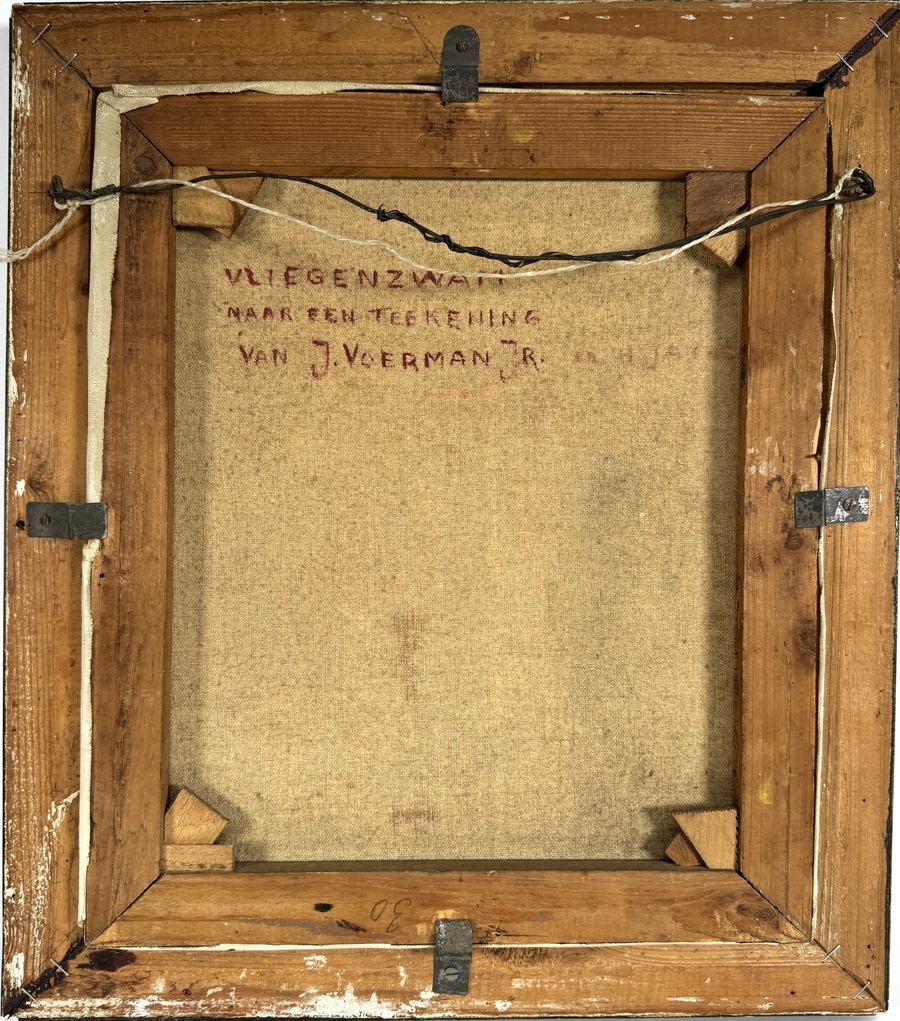 VLIEGENZWAM
NAAR EEN TEEKENING
VAN J. VOERMAN JR.
30